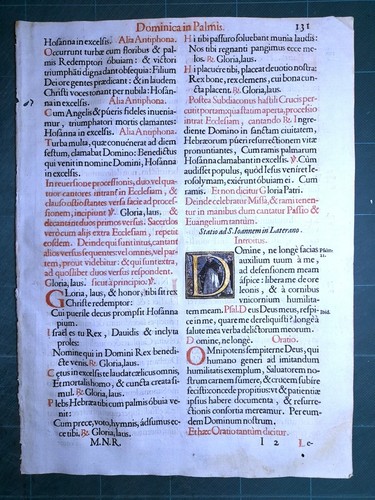 Dominica in Palmis. 131
Hosanna in excelsis. Alia Antiphona.
Occurrunt turbæ cum floribus & pal-
mis Redemptori óbuiam: & victóri
triumphánti digna dant obsequia: Filium
Dei ore gentes prædicant: & in laudem
Christi voces tonant per nubila: Hosan-
na in excelsis. Alia Antiphona.
Cum Angelis & púeris fideles inuenia-
mur, triumphatóri mortis clamantes:
Hosanna in excelsis. Alia Antiphona.
Turba multa, quæ conuénerat ad diem
festum, clamabat Domino: Benedíctus
qui venit in nomine Domini, Hosanna
in excelsis.
In reuersione processionis, duo vel qua-
tuor cantores intrant in Ecclesiam, &
clauso ostio stantes versa facie ad proces-
sionem, incipiunt ℣. Gloria, laus, &
decantant duos primos versus. Sacerdos
verò cum alijs extra Ecclesiam, repetit
eosdem. Deinde qui sunt intus, cantant
alios versus sequentes vel omnes, vel par-
tem, prout videbitur: & qui sunt extra,
ad quoslibet duos versus respondent.
Gloria, laus. sicut à principio ℣.
Gloria, laus, & honor, tibi sit rex
Christe redémptor:
Cui puerile decus prompsit Hosanna
pium.
Israël es tu Rex, Dauidis & inclyta
proles:
Nomine qui in Domini Rex benedí-
cte venis. ℟. Gloria, laus.
Cœtus in excelsis te laudat cælicus omnis,
Et mortalis homo, & cuncta creata si-
mul. ℟. Gloria, laus.
Plebs Hebræa tibi cum palmis óbuia ve-
nit:
Cum prece, voto, hymnis, ádsumus ec-
ce tibi. ℟. Gloria, laus.
M.N.R.
Hi tibi passuro soluebant munia laudis:
Nos tibi regnanti pangimus ecce me-
los. ℟. Gloria, laus.
Hi placuêre tibi, placeat deuotio nostra:
Rex bone, rex clemens, cui bona cun-
cta placent. ℟. Gloria, laus.
Postea Subdiaconus hastili Crucis per-
cutit portam: qua statim aperta, processio
intrat Ecclesiam, cantando ℟. Ingre-
diente Domino in sanctam ciuitatem,
Hebræorum púeri resurrectiónem vitæ
pronuntiantes, Cum ramis palmarum
Hosanna clamabant in excelsis. ℣. Cùm
audisset populus, quòd Iesus veníret Ie-
rosolymam, exiérunt óbuiam ei. Cum
ramis. Et non dicitur Gloria Patri.
Deinde celebratur Missa, & rami tenen-
tur in manibus dum cantatur Passio &
Euangelium tantùm.
Statio ad S. Ioannem in Laterano.
Introitus.
Domine, ne longè facias
auxilium tuum à me,
ad defensionem meam
áspice: libera me de ore
leonis, & à cornibus
vnicornium humilita-
tem meam. Psal. Deus Deus meus, respi-
ce in me, quare me dereliquisti? longè à
salute mea verba delictórum meórum.
Domine, ne longè. Oratio.
Omnípotens sempiterne Deus, qui
humano generi ad imitandum
humilitatis exemplum, Saluatorem no-
strum carnem súmere, & crucem subire
fecisti: concede propitius; vt & patientiæ
ipsius habere documenta, & resurre-
ctiónis consortia mereamur. Per eum-
dem Dominum nostrum.
Et hæc Oratio tantùm dicitur.
I 2 Le-